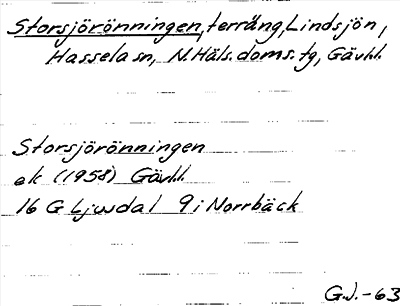 Storsjörönningen, terräng, Lindsjön,
Hassela sn, N.Häls.doms.tg, Gävl.l.
Storsjörönningen
ek (1958) Gävl.l.
16 G Ljusdal 9 i Norrbäck
G.J.-63